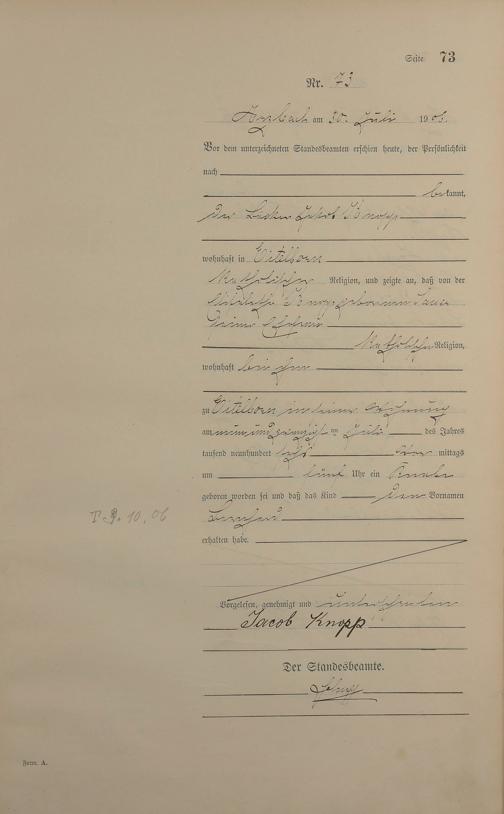 Seite 73
Nr. 73
Arzbach am 30. Juli 1906.
Vor dem unterzeichneten Standesbeamten erschien heute, der Persönlichkeit
nach
bekannt,
der Jakob Knopp
wohnhaft in Eitelborn
katholischer Religion, und zeigte an, daß von der
Knopp geborenen
seiner Ehefrau
katholischer Religion,
wohnhaft bei ihm
zu Eitelborn in seiner Wohnung
am neunundzwanzigsten Juli des Jahres
tausend neunhundert sechs mittags
um fünf Uhr ein Knabe
geboren worden sei und daß das Kind den Vornamen
erhalten habe.
T. 9. 10. 06
Vorgelesen, genehmigt und unterschrieben
Jacob Knopp
Der Standesbeamte.
Form. A.